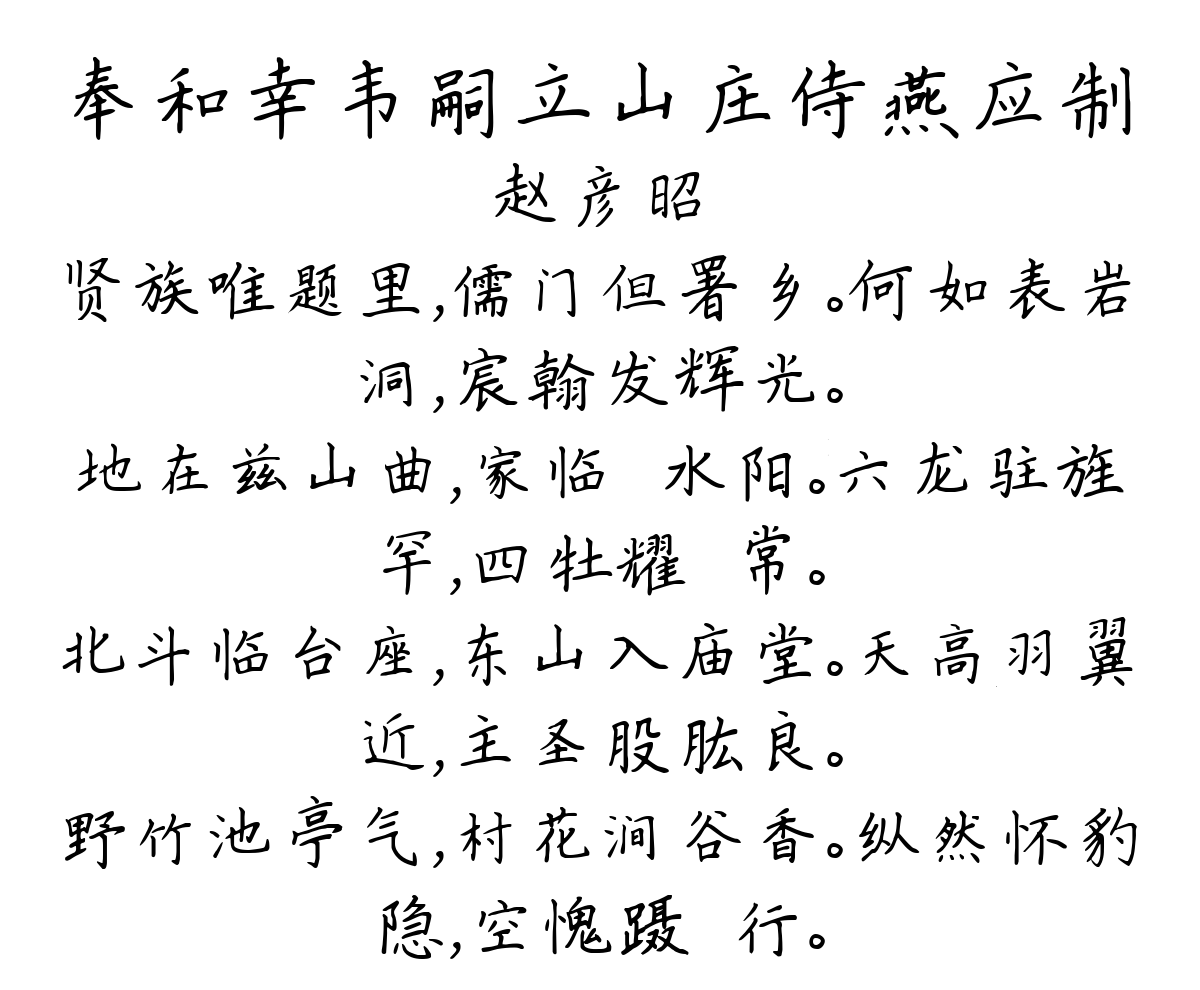 奉和幸韦嗣立山庄侍燕应制
赵彦昭
贤族唯题里,儒门但署乡。何如表岩
洞,宸翰发辉光。
地在兹山曲,家临 水阳。六龙驻旌
罕,四牡耀 常。
北斗临台座,东山入庙堂。天高羽翼
近,主圣股肱良。
野竹池亭气,村花涧谷香。纵然怀豹
隐,空愧蹑 行。